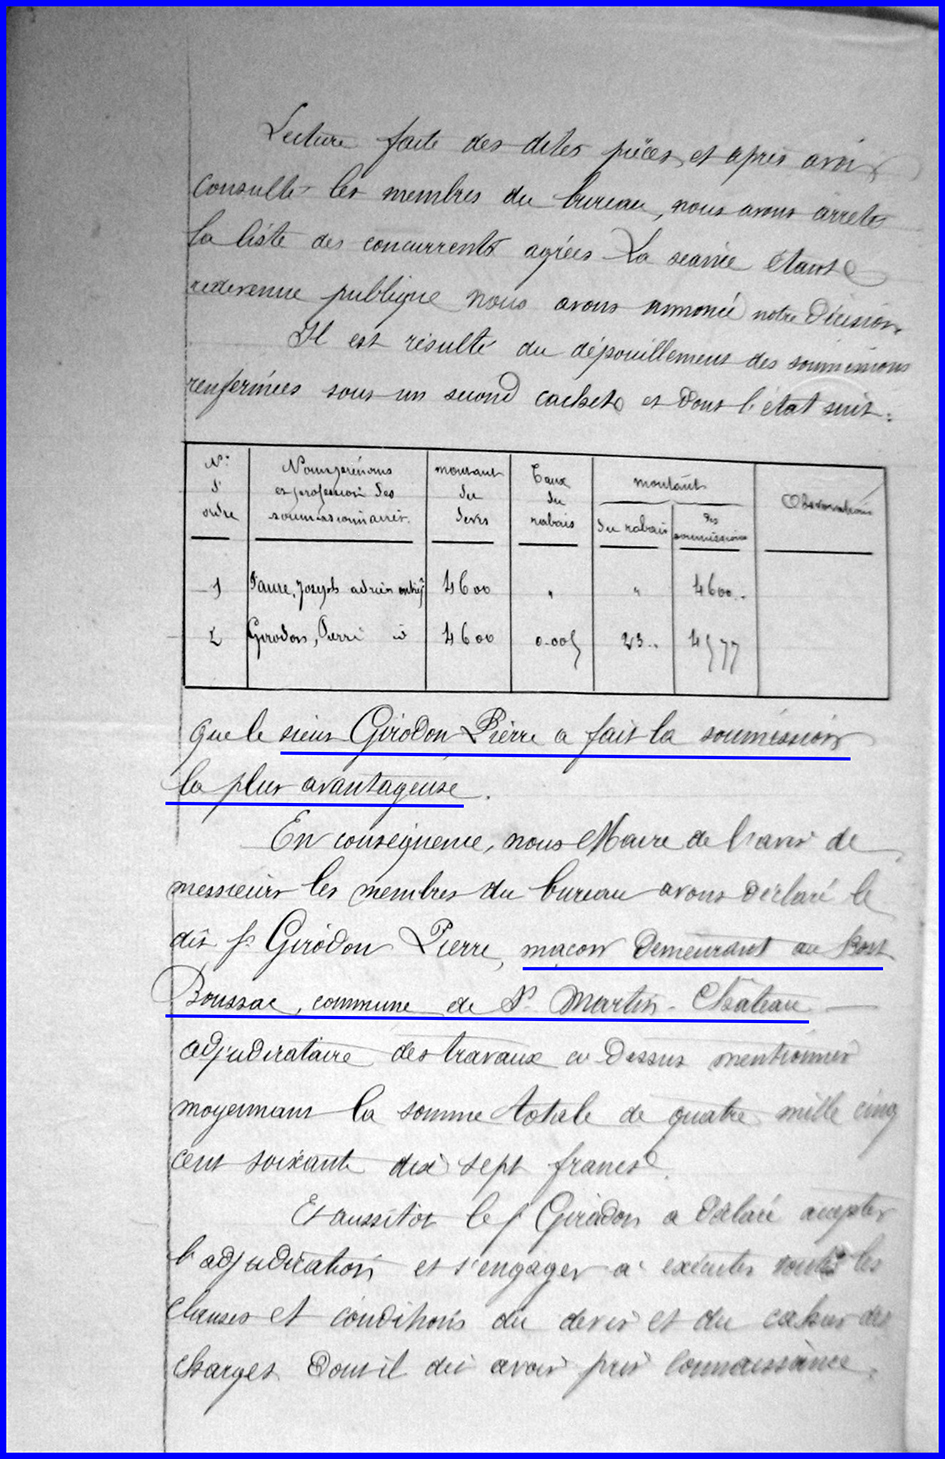 Lecture faite des dites pièces et après avoir
consulté les membres du bureau, nous avons arrêté
la liste des concurrents agréés La séance étant
redevenue publique nous avons annoncé notre décision.
Il est résulté du dépouillement des soumissions
renfermées sous un second cachet et dont l'état suit:
N° d' ordre
Noms prénoms et profession des soumissionnaires
montant du devis
Taux du rabais
montant
du rabais
des soumissions
Observations
1 Faure, Joseph adrien 4600 " " 4600..
2 Girodon, Pierre id 4600 0.005 23.. 4577
que le sieur Girodon Pierre a fait la soumission
la plus avantageuse.
En conséquence, nous Maire de l'avis de
messieurs les membres du bureau avons déclaré le
dit sr Girodon Pierre, maçon demeurant au Pont
Boussac, commune de St Martin-Château
adjudicataire des travaux ci dessus mentionnés
moyennant la somme totale de quatre mille cinq
cent soixante dix sept francs.
Et aussitôt le sr Girodon a déclaré accepter
l'adjudication et s'engager à exécuter toutes les
clauses et conditions du devis et du cahier des
charges dont il dit avoir pris connaissance.